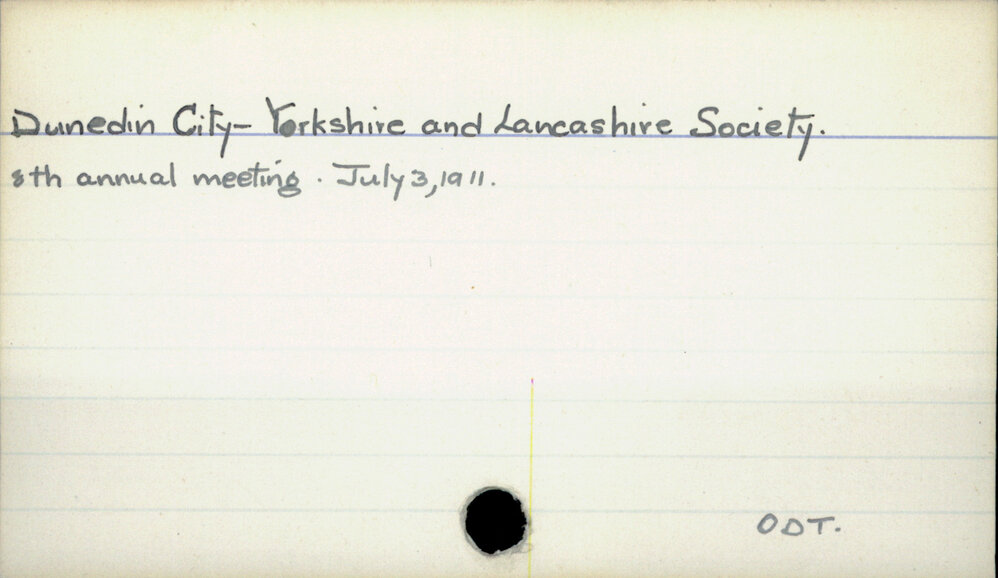 Dunedin City- Yorkshire and Lancashire Society.
8th annual meeting. July 3, 1911.
ODT.